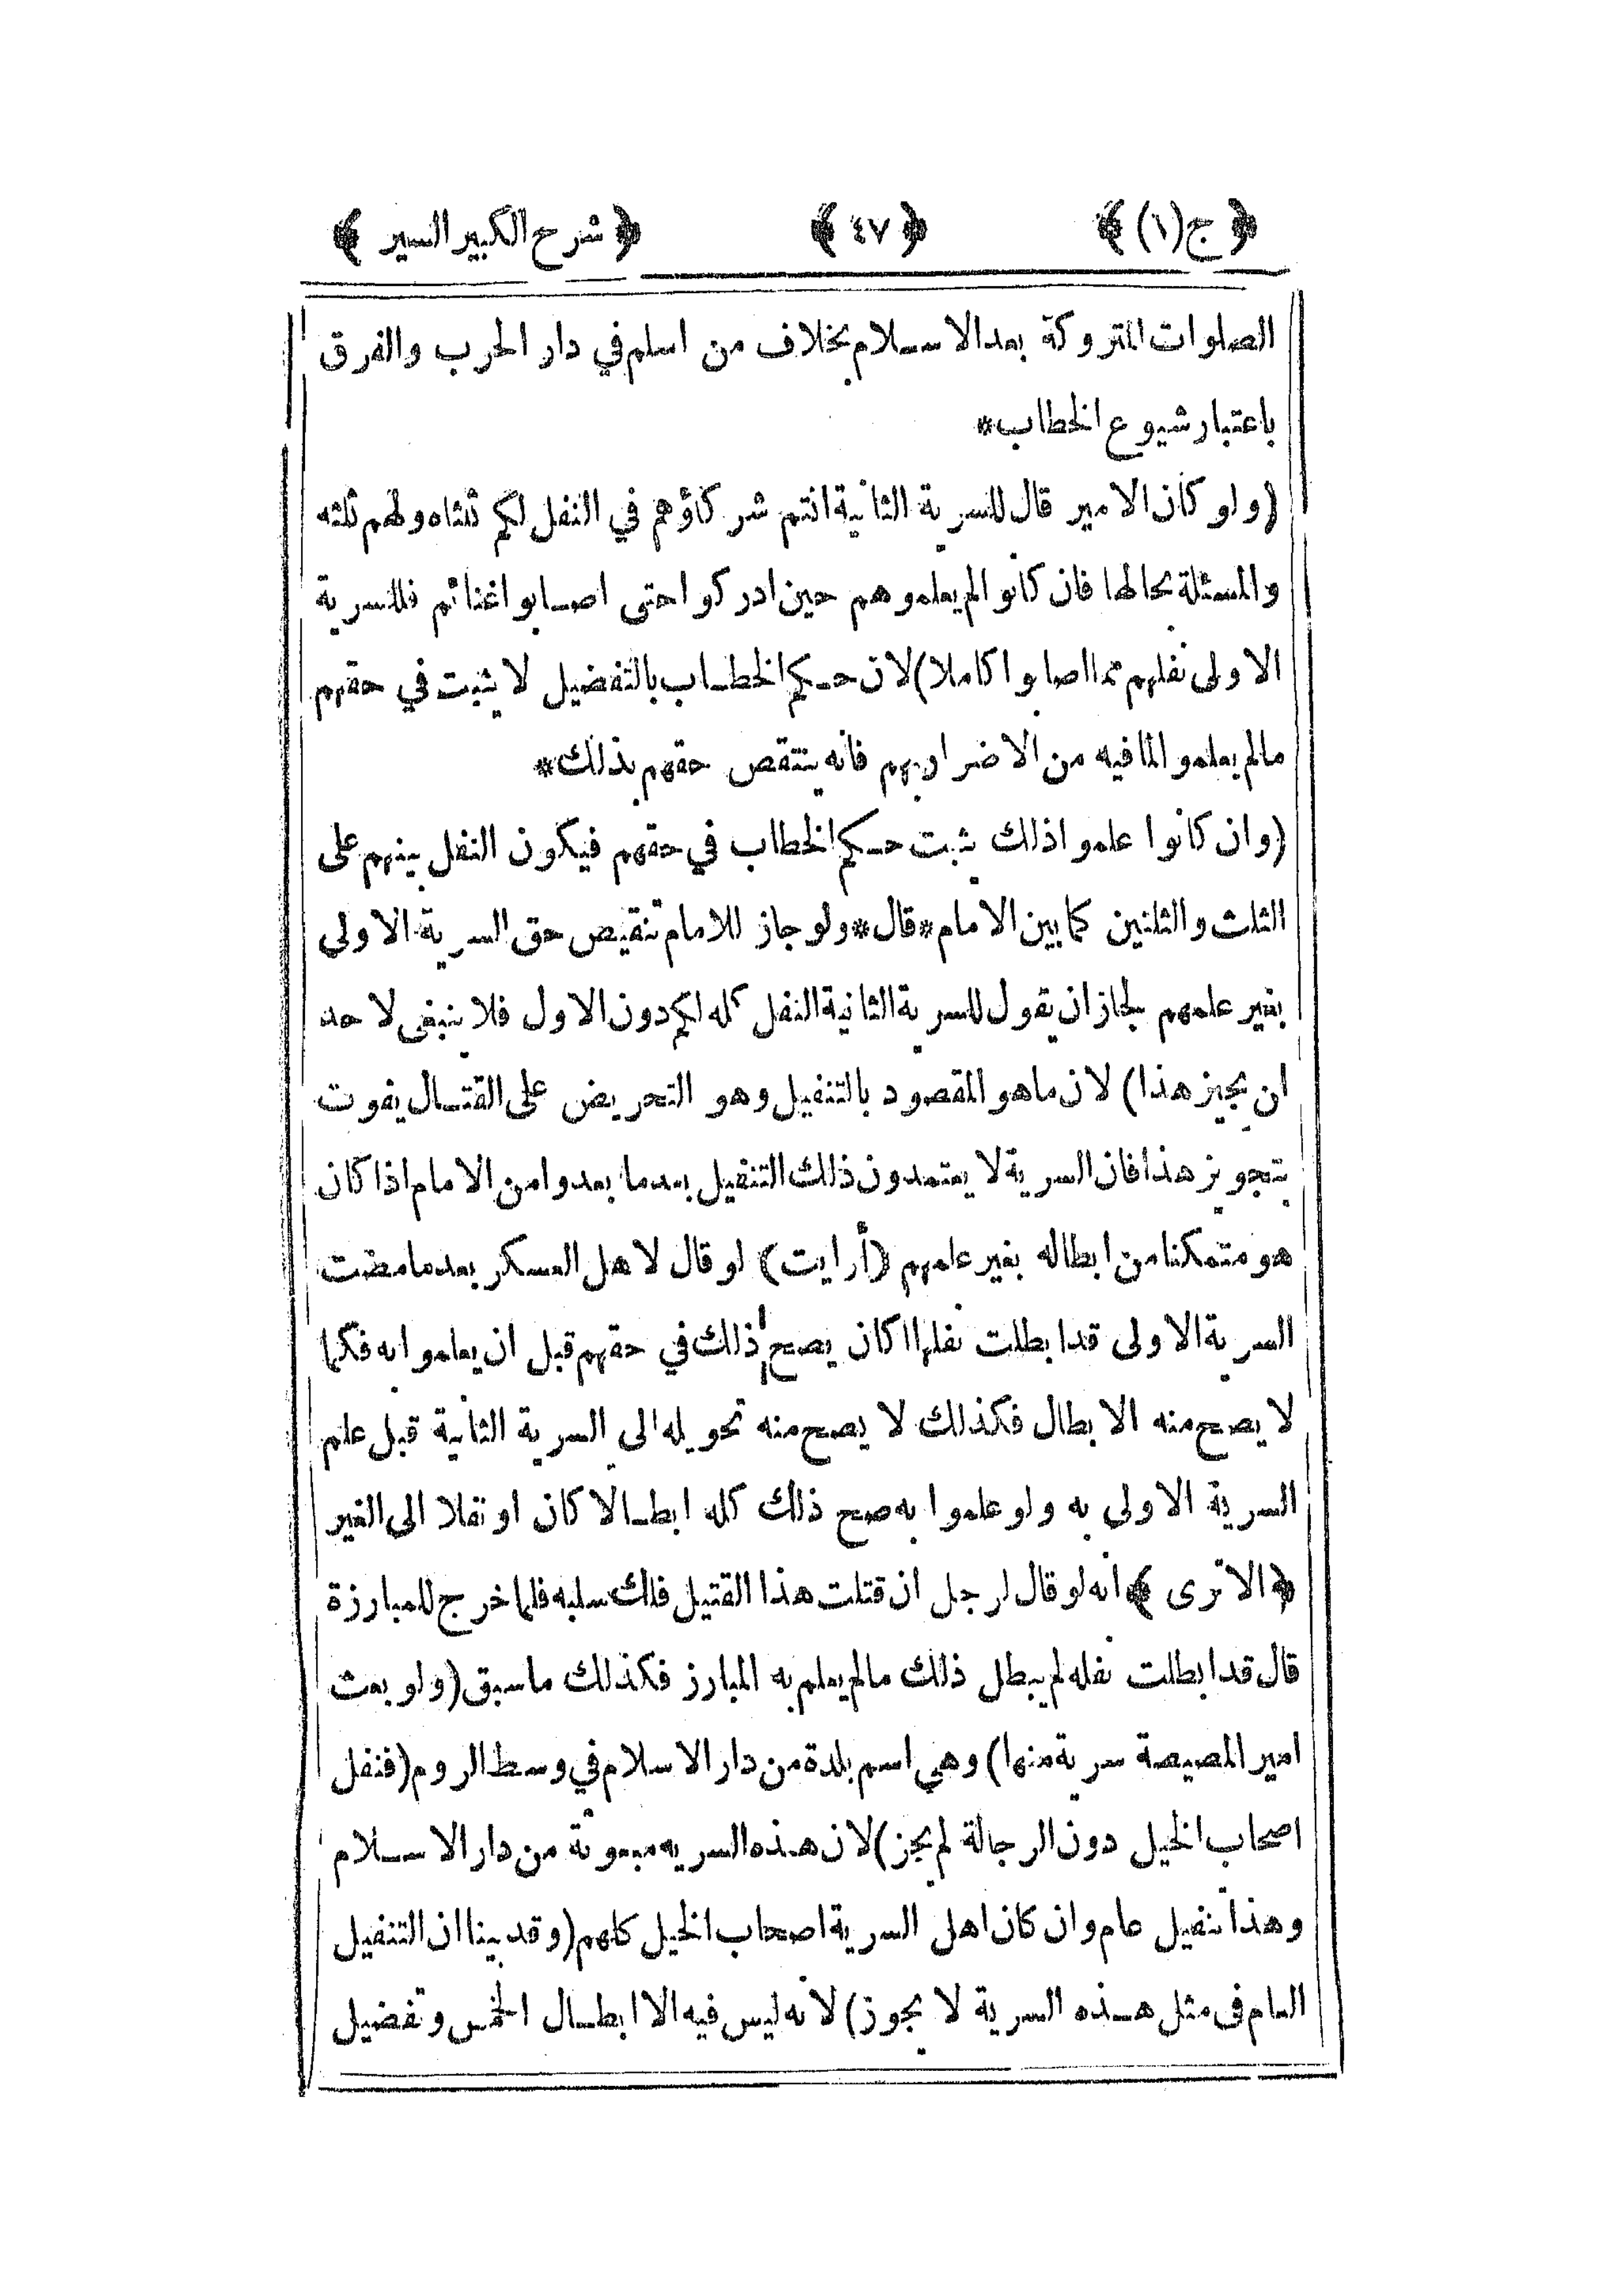 ﴿ ج(١) ﴾ ﴿ ٤٧ ﴾ ﴿ شرح الكبير السير ﴾
الصلوات المتروكة بعد الاسلام بخلاف من اسلم في دار الحرب والفرق
باعتبار شيوع الخطاب*
(ولو كان الامير قال للسرية الثانية انتم شركاؤهم في النفل لكم ثلثاه ولهم ثلثه
والمسئلة بحالها فان كانوا لم يعلموهم حين ادركوا حتى اصابوا غنائم فللسرية
الاولى نفلهم مما اصابوا كاملا) لان حكم الخطاب بالتفضيل لا يثبت في حقهم
مالم يعلموا لما فيه من الاضرار بهم فانه ينتقص حقهم بذلك*
(وان كانوا علموا ذلك يثبت حكم الخطاب في حقهم فيكون النفل بينهم على
الثلث والثلثين كما بين الامام*قال*ولو جاز للامام تنقيص حق السرية الاولى
بغير علمهم لجاز ان يقول للسرية الثانية النفل كله لكم دون الاول فلا ينبغي لاحد
ان يجيز هذا) لان ماهو المقصود بالتنفيل وهو التحريض على القتال يفوت
بتجويز هذا فان السرية لا يعتمدون ذلك التنفيل بعدما بعدوا من الامام اذا كان
هو متمكنا من ابطاله بغير علمهم (أرايت) لو قال لاهل العسكر بعدما مضت
السرية الاولى قد ابطلت نفلها اكان يصح ذلك في حقهم قبل ان يعلموا به فكما
لا يصح منه الابطال فكذلك لا يصح منه تحويله الى السرية الثانية قبل علم
السرية الاولى به ولو علموا به صح ذلك كله ابطالا كان او نقلا الى الغير
﴿الاترى﴾ انه لو قال لرجل ان قتلت هذا القتيل فلك سلبه فلما خرج للمبارزة
قال قد ابطلت نفله لم يبطل ذلك مالم يعلم به المبارز فكذلك ماسبق (ولو بعث
امير المصيصة سرية منها) وهي اسم بلدة من دار الاسلام في وسط الروم (فنفل
اصحاب الخيل دون الرجالة لم يجز) لان هذه السريه مبعوثة من دار الاسلام
وهذا تنفيل عام وان كان اهل السرية اصحاب الخيل كلهم (وقد بينا ان التنفيل
العام فى مثل هذه السرية لا يجوز) لانه ليس فيه الا ابطال الخمس وتفضيل